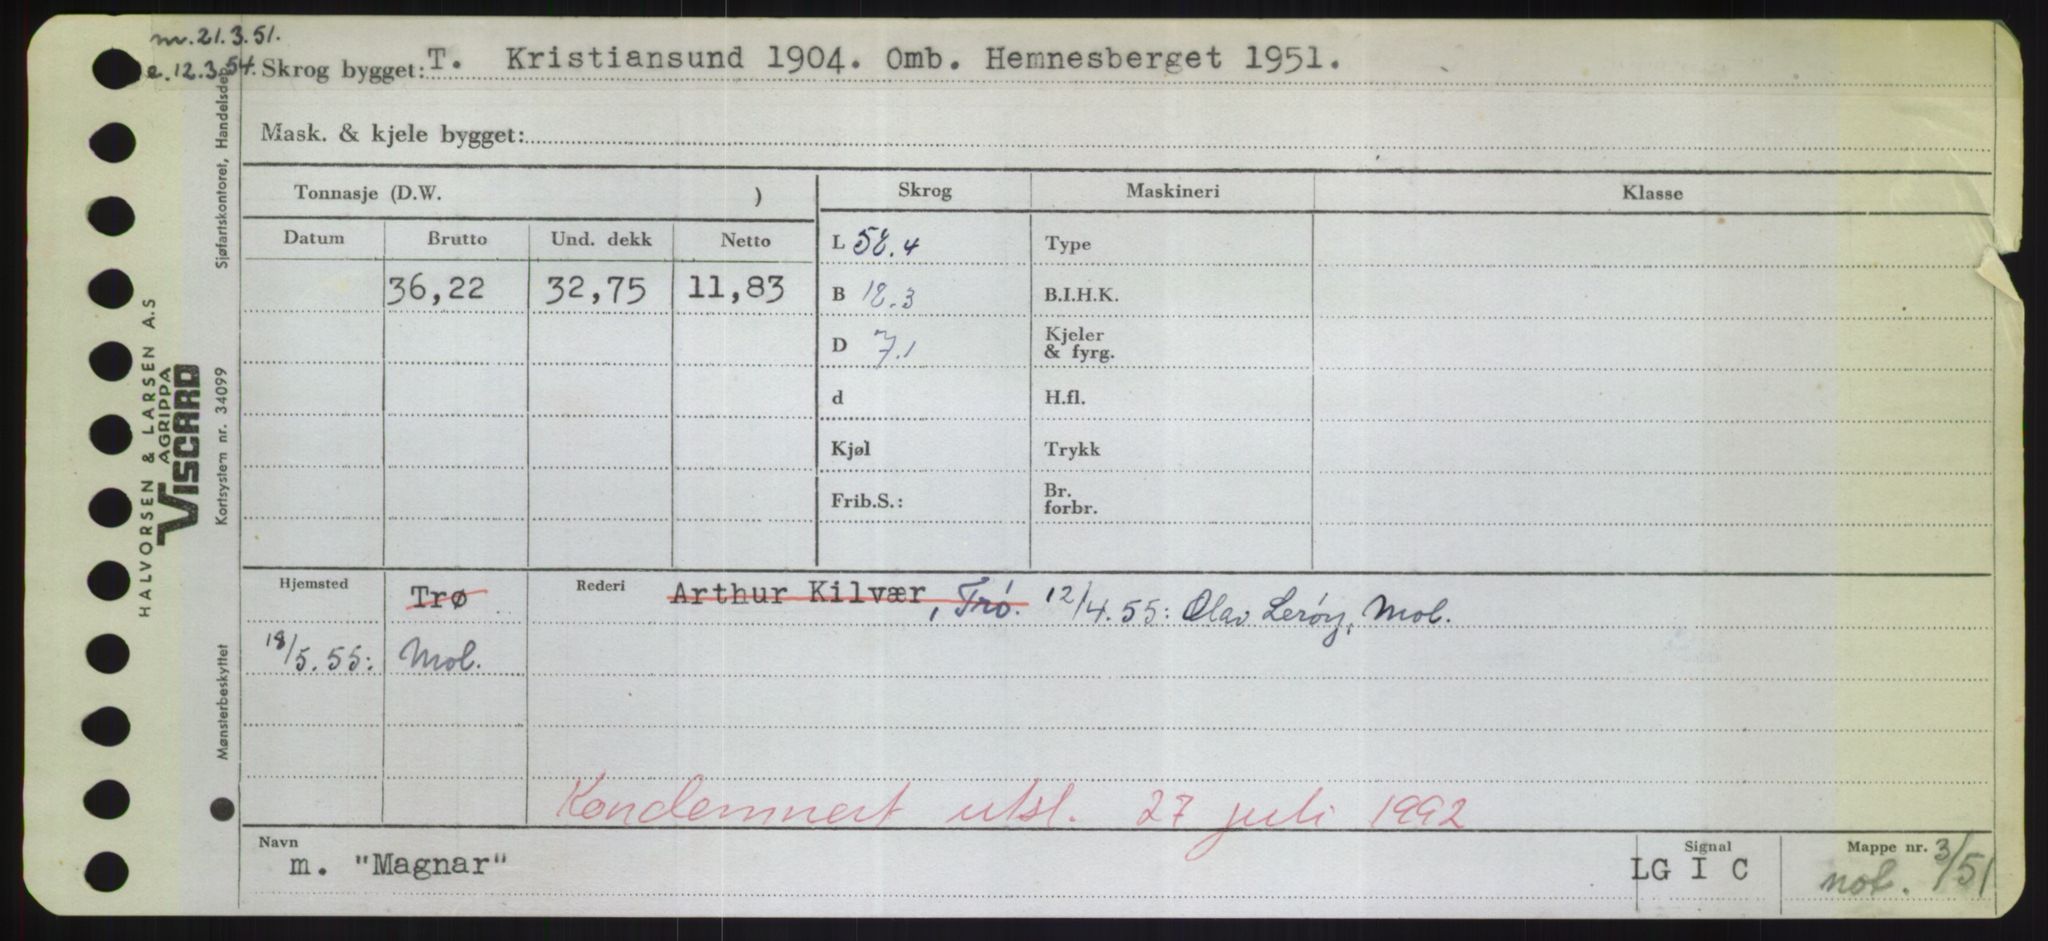 m. 21.3.51.
e. 12.3.54. Skrog bygget: T. Kristiansund 1904. Omb. Hemnesberget 1951.
Mask. & kjele bygget:
Tonnasje (D.W. )
Skrog Maskineri Klasse
Datum Brutto Und. dekk Netto
36,22 32,75 11,83
L 58.4 Type
B 18.3 B.I.H.K.
D 7.1 Kjeler
& fyrg.
d H.fl.
Kjøl Trykk
Frib.S.: Br.
forbr.
Hjemsted Trø Rederi Arthur Kilvær, Trø. 12/4.55: Olav Lerøy, Mol.
18/5.55: Mol.
Kondemnert utsl. 27 juli 1992
Navn Signal Mappe nr.
m. "Magnar" LG I C not. 3/51
HALVORSEN & LARSEN A.S
AGRIPPA
VISCARD
Mønsterbeskyttet Kortsystem nr. 34099 Sjøfartskontoret, Handelsdep.